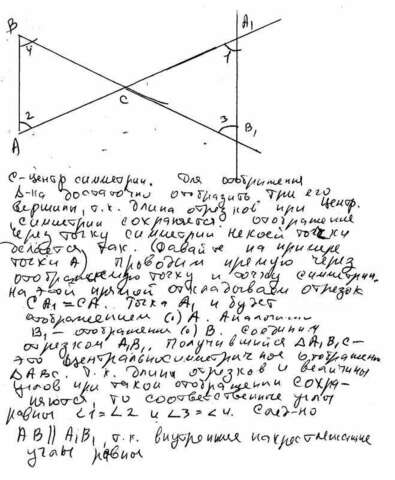 B
A₁
4
1
C
2
3
A
B₁
C-центр симметрии. Для отображения
Δ-ка достаточно отобразить три его
вершины, т.к. длина отрезков при центр.
симметрии сохраняется. Отображение
через точку симметрии некоей точки
делается так. (Давайте на примере
точки А) Проводим прямую через
отображаемую точку и точку симметрии.
на этой прямой откладываем отрезок
CA₁=CA. Точка A₁ и будет
отображением (·) A. Аналогич
B₁ - отображение (·) B. Соединим
отрезком A₁B₁. Получившийся ΔA₁B₁C-
это центральносимметричное отображение
ΔABC. Т.к. длины отрезков и величины
углов при таком отображении сохра-
няются, то соответственные углы
равны ∠1=∠2 и ∠3=∠4. След-но
AB || A₁B₁, т.к. внутренние накрестлежащие
углы равны